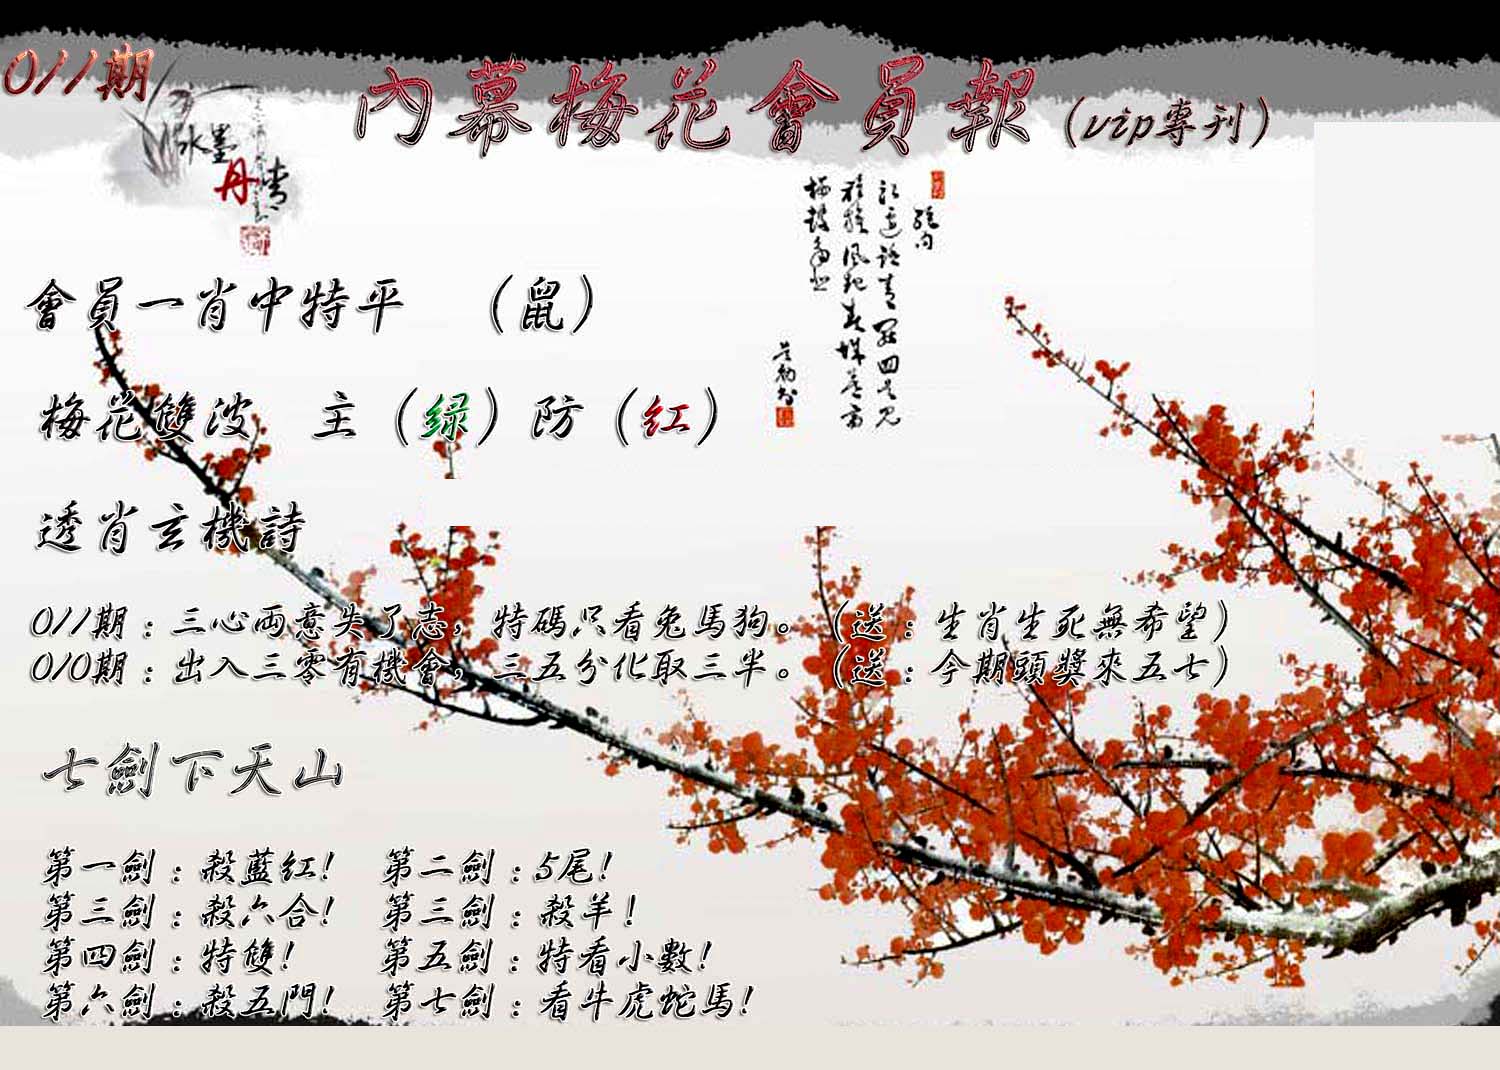 011期
內幕梅花會員報（vip專刊）
水墨
丹青
會員一肖中特平 （鼠）
梅花雙波 主（绿）防（红）
透肖玄機詩
011期：三心両意失了志，特碼只看兔馬狗。（送：生肖生死無希望）
010期：出入三零有機會，三五分化取三半。（送：今期頭獎來五七）
七劍下天山
第一劍：殺藍红！ 第二劍：5尾！
第三劍：殺六合！ 第三劍：殺羊！
第四劍：特雙！ 第五劍：特看小數！
第六劍：殺五門！ 第七劍：看牛虎蛇馬！